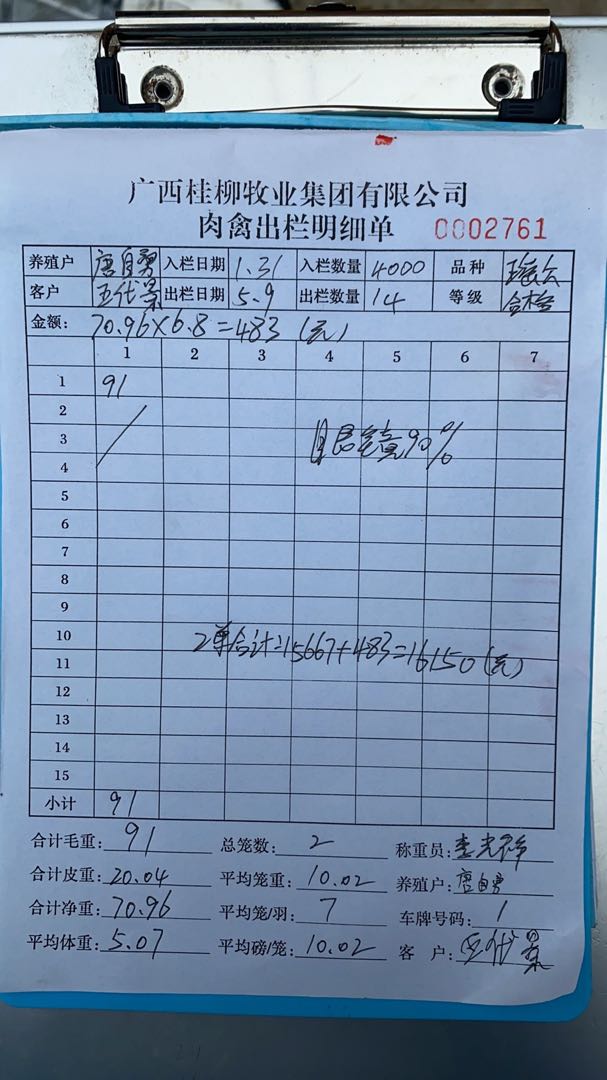 广西桂柳牧业集团有限公司
肉禽出栏明细单 0002761
养殖户 唐自勇 入栏日期 1.31 入栏数量 4000 品种
客户 王代景 出栏日期 5.9 出栏数量 14 等级
金额: 70.96×6.8=483 (元)
1 2 3 4 5 6 7
1 91
2
3 90%
4
5
6
7
8
9
10 2单合计:15667+483=16150(元)
11
12
13
14
15
小计 91
合计毛重: 91 总笼数: 2 称重员: 李光祥
合计皮重: 20.04 平均笼重: 10.02 养殖户: 唐自勇
合计净重: 70.96 平均笼/羽: 7 车牌号码: 1
平均体重: 5.07 平均磅/笼: 10.02 客户: 王代景